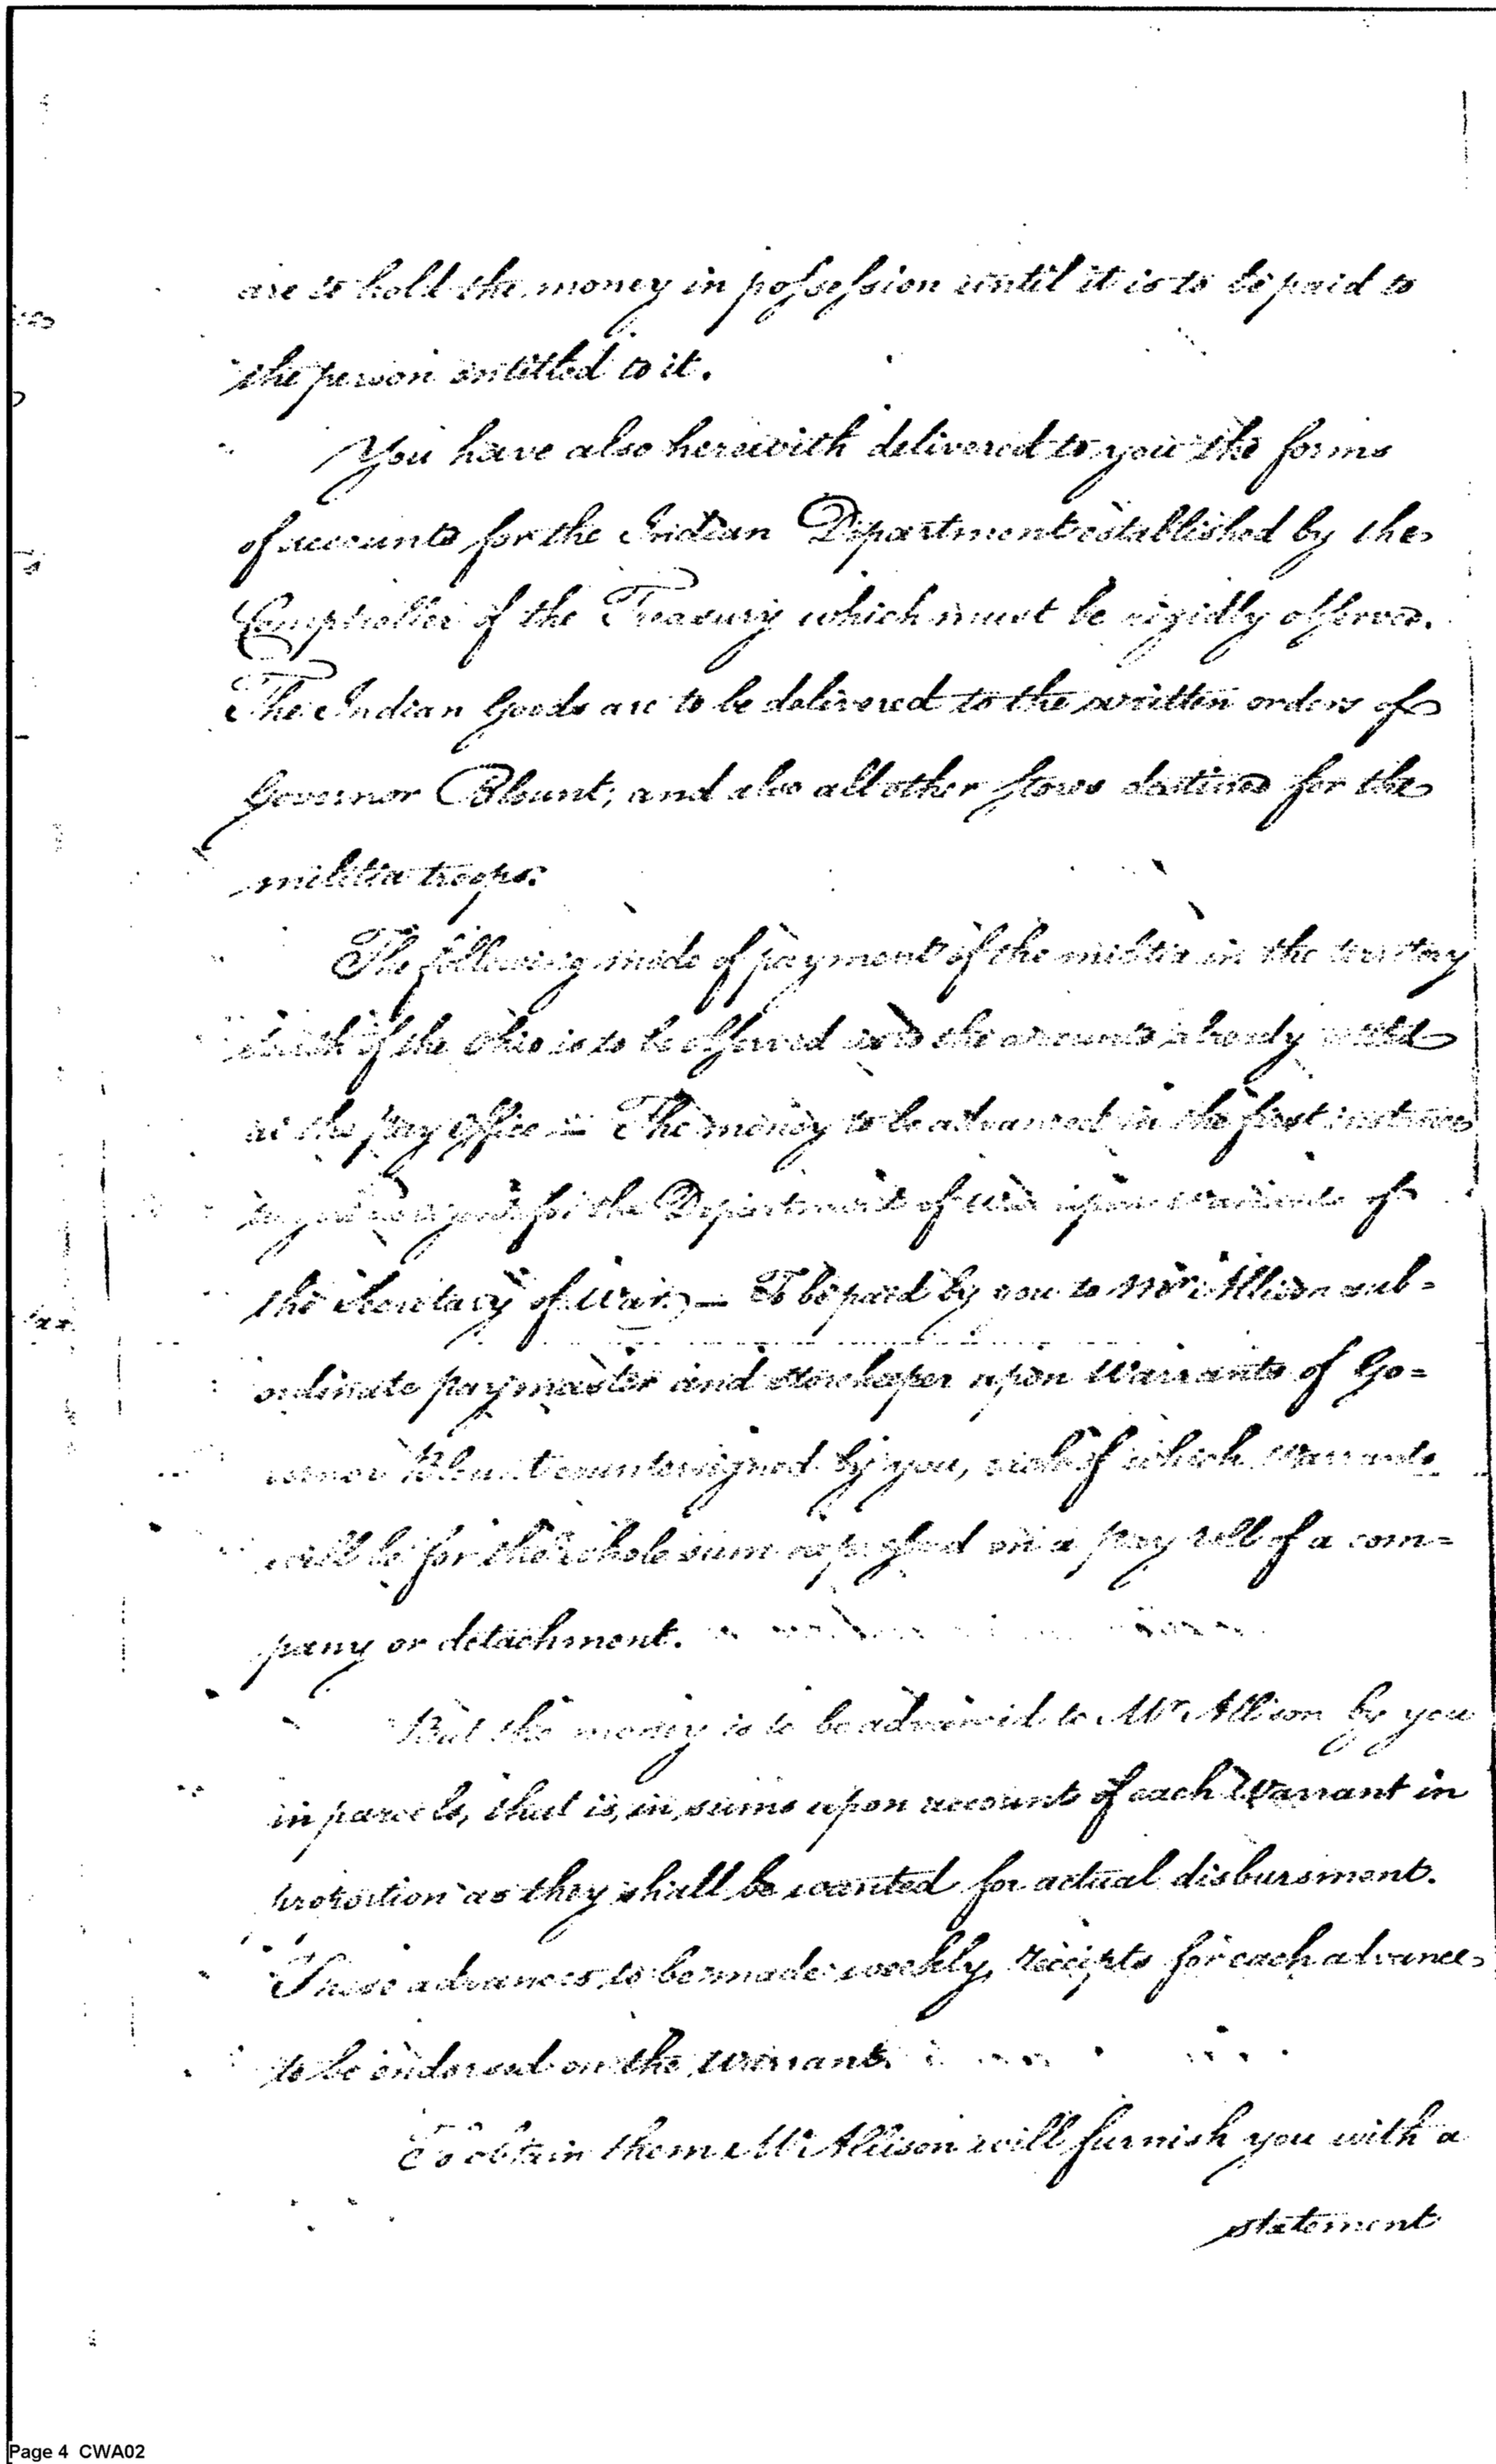 are to hold the money in possession until it is to be paid to
the person entitled to it.
You have also herewith delivered to you the forms
of accounts for the Indian Department established by the
Comptroller of the Treasury which must be rigidly observed.
The Indian Goods are to be delivered to the written orders of
Governor Blount; and also all other stores destined for the
militia troops.
The following mode of payment of the militia in the territory
south of the Ohio is to be observed the accounts already
at the pay office — The money to be advanced in the first instance
to you for the Department of War upon warrants of
the Secretary of War — To be paid by you to Mr. Allison sub=
ordinate paymaster and storekeeper upon Warrants of Go=
vernor Blount countersigned by you, each of which Warrants
will be for the whole sum on a pay roll of a com=
pany or detachment.
But the money is to be advanced to Mr. Allison by you
in parcels, that is, in sums upon account of each Warrant in
proportion as they shall be wanted for actual disbursment.
These advances to be made weekly, receipts for each advance
to be endorsed on the warrant.
To obtain them Mr Allison will furnish you with a
statement
Page 4 CWA02